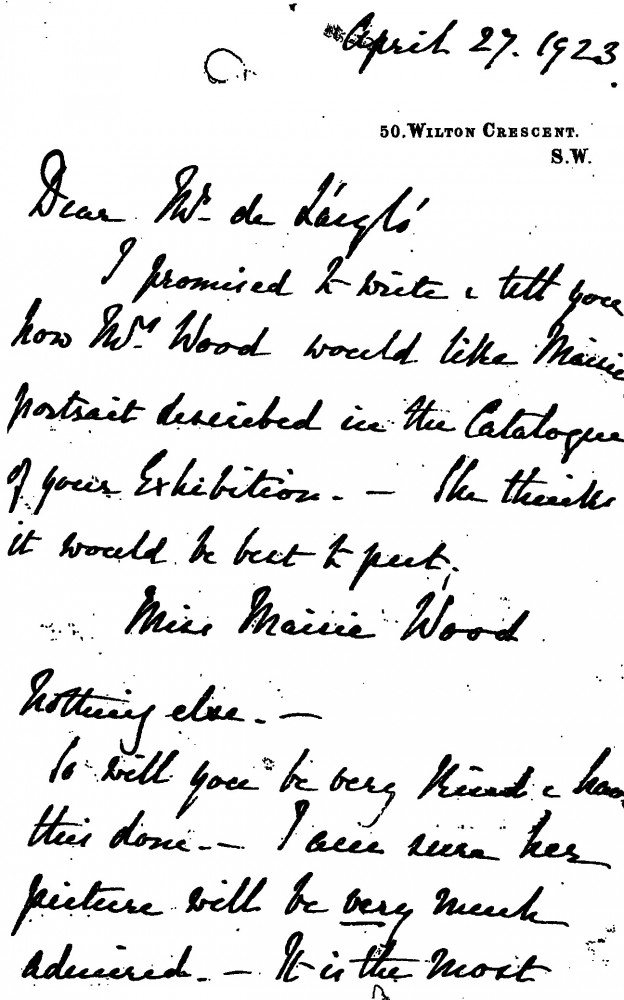 April 27. 1923
50. WILTON CRESCENT.
S.W.
Dear Mr. de László
I promised to write & tell you
how Mrs. Wood would like Maisie
portrait described in the Catalogue
of your Exhibition. — She thinks
it would be best to put;
Miss Maisie Wood
Nothing else. —
So will you be very kind & have
this done. — I am sure her
picture will be very much
admired. — It is the most